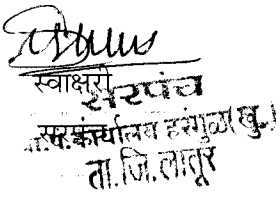 स्वाक्षरी
सरपंच
सरपंच
ग्रा.पं. कार्यालय हरंगुळ (खु.)
ता.जि.लातूर